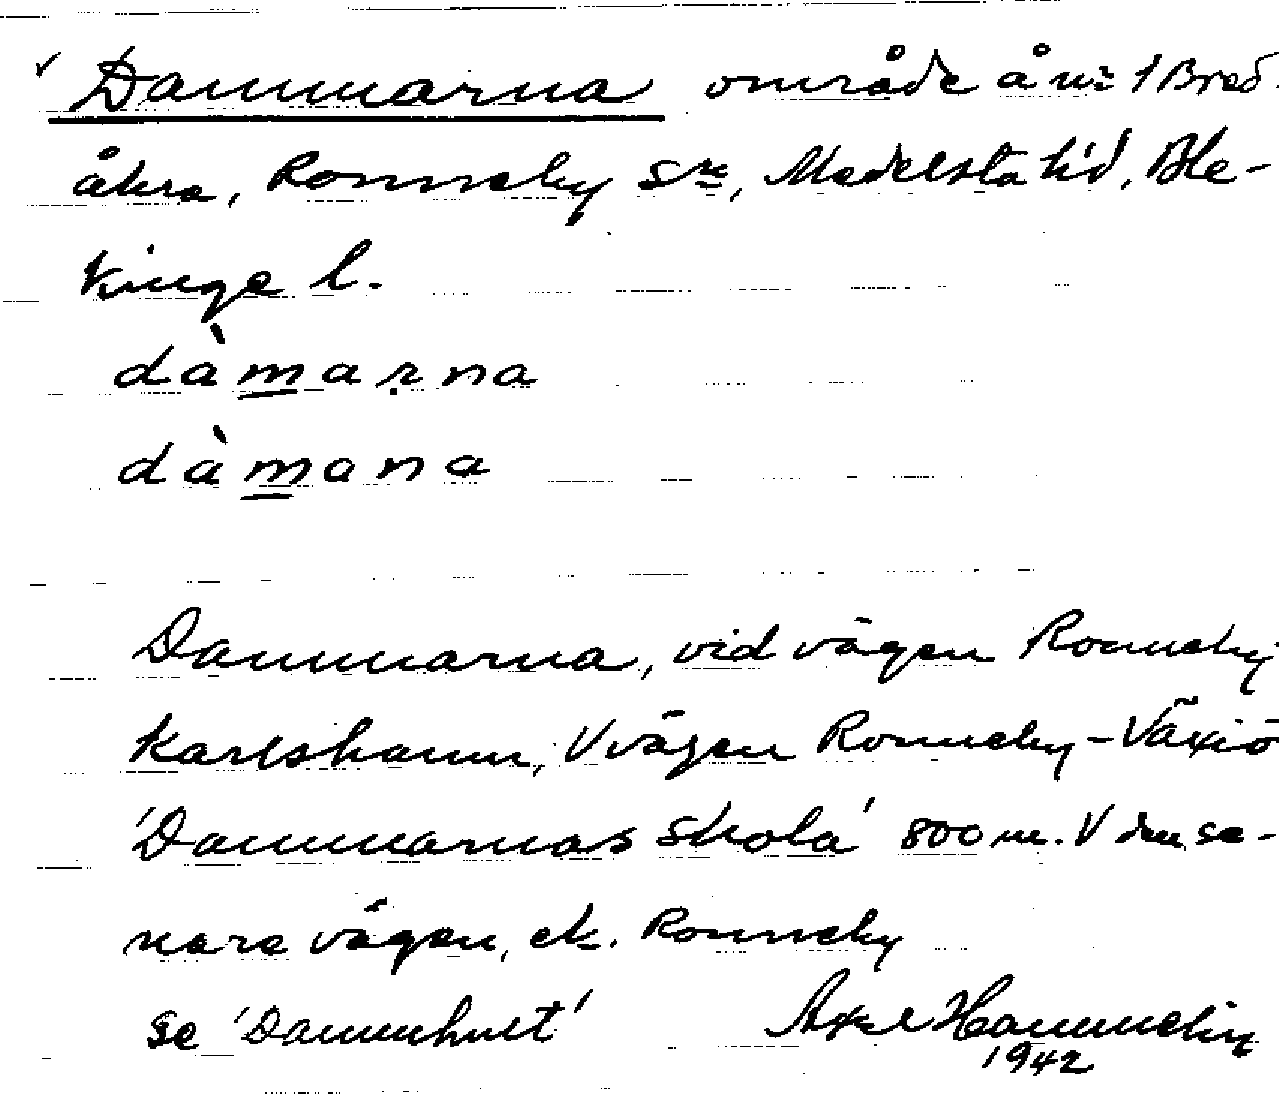 Dammarna område å nr 1 Bred-
åkra, Ronneby sn, Medelsta hd, Ble-
kinge l.
dàmarna
dàmana
Dammarna, vid vägen Ronneby
Karlshamn, V vägen Ronneby - Växiö
'Dammarnas skola' 800 m. V den se-
nare vägen, ek. Ronneby
se 'Dammhult' Axel
1942